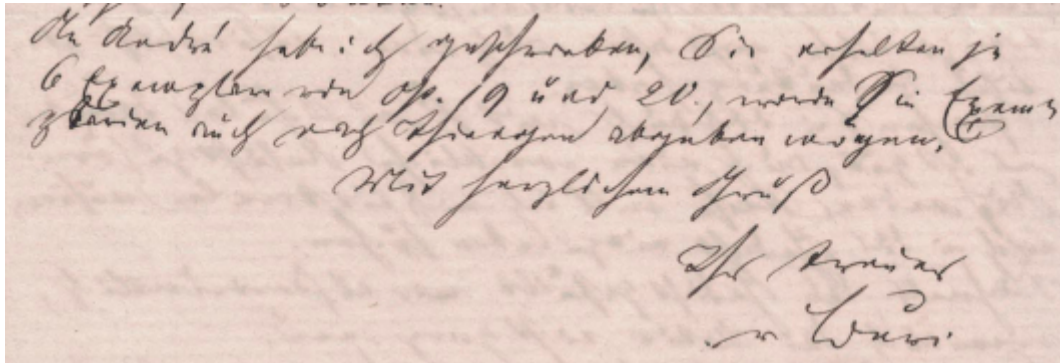 An André habe ich geschrieben, Sie erhalten je
6 Exemplare von Op. 19 und 20., wovon Sie Exem-
plarien auch nach abgeben mögen.
Mit herzlichem Gruß
Ihr treuer